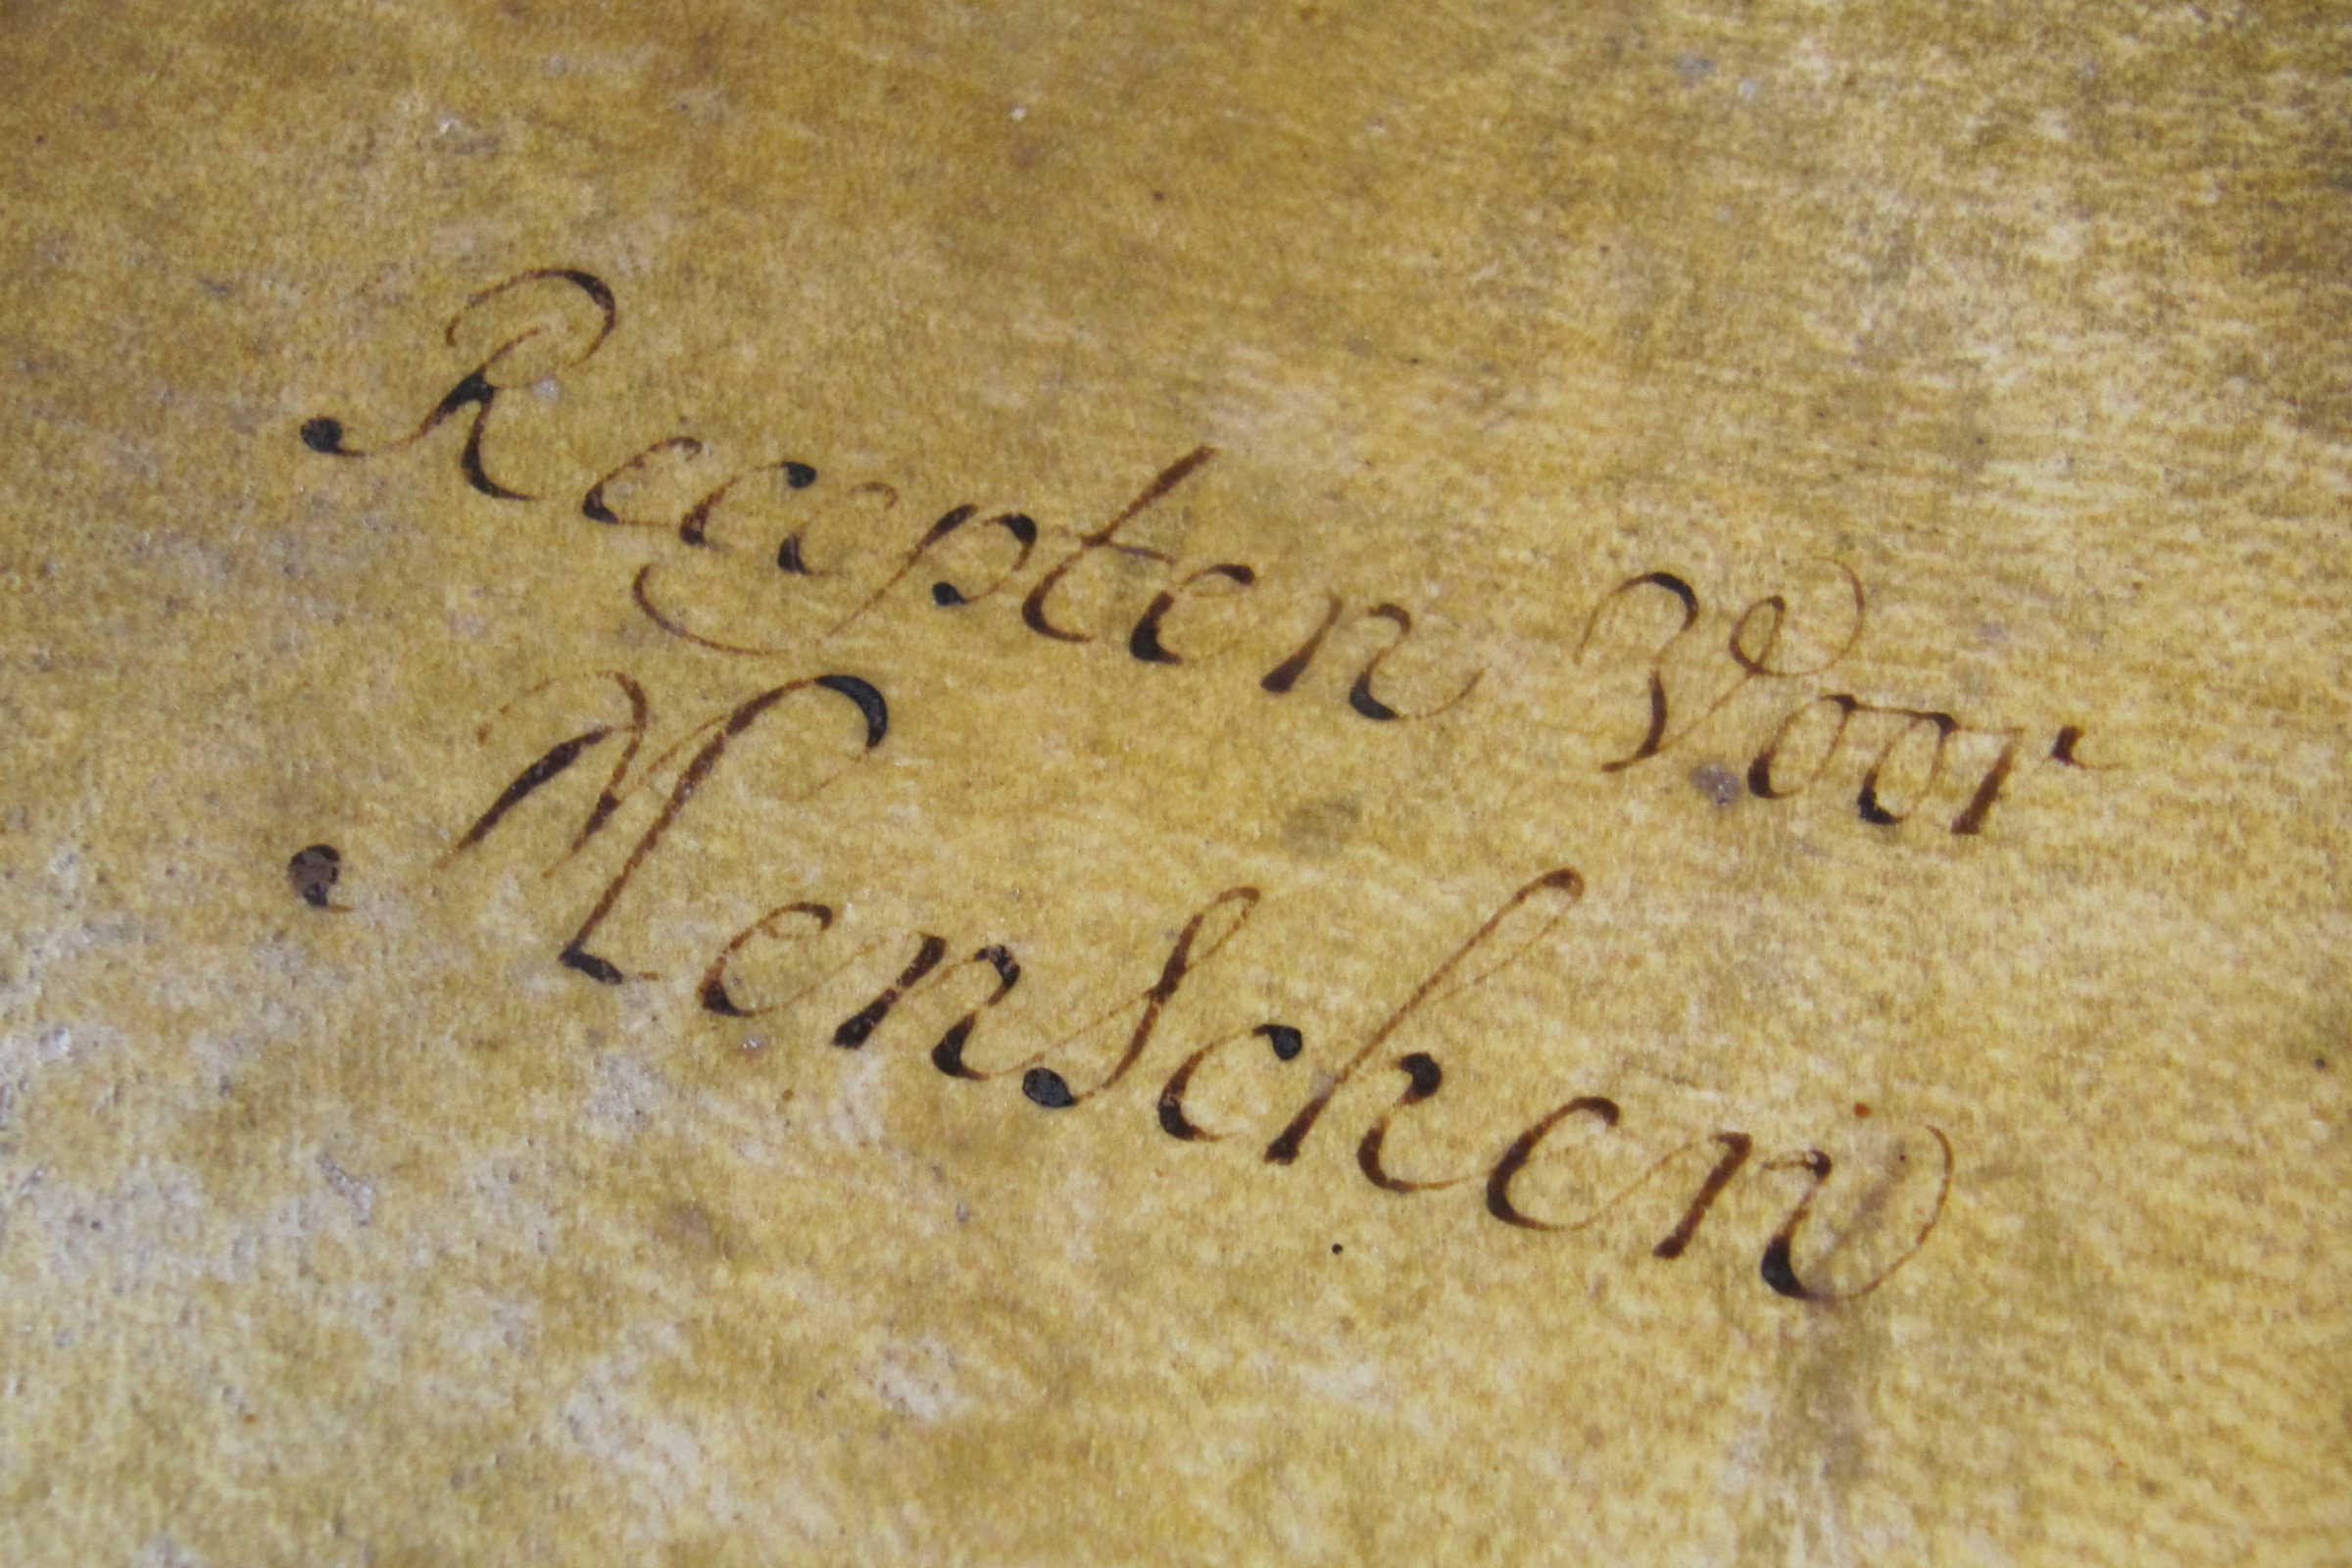 Recepten Voor
Menschen